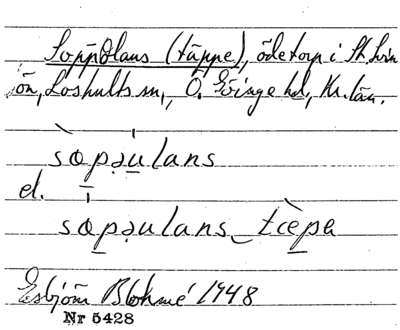 Soppölans (täppe), ödetorp i St. Svin
ön, Loshults sn, Ö. Göinge hd, Kr. län.
sɑ̀pəulans
el.
sɑpəulans‿tɛ̀pa
Esbjörn Blohmé 1948
Nr 5428